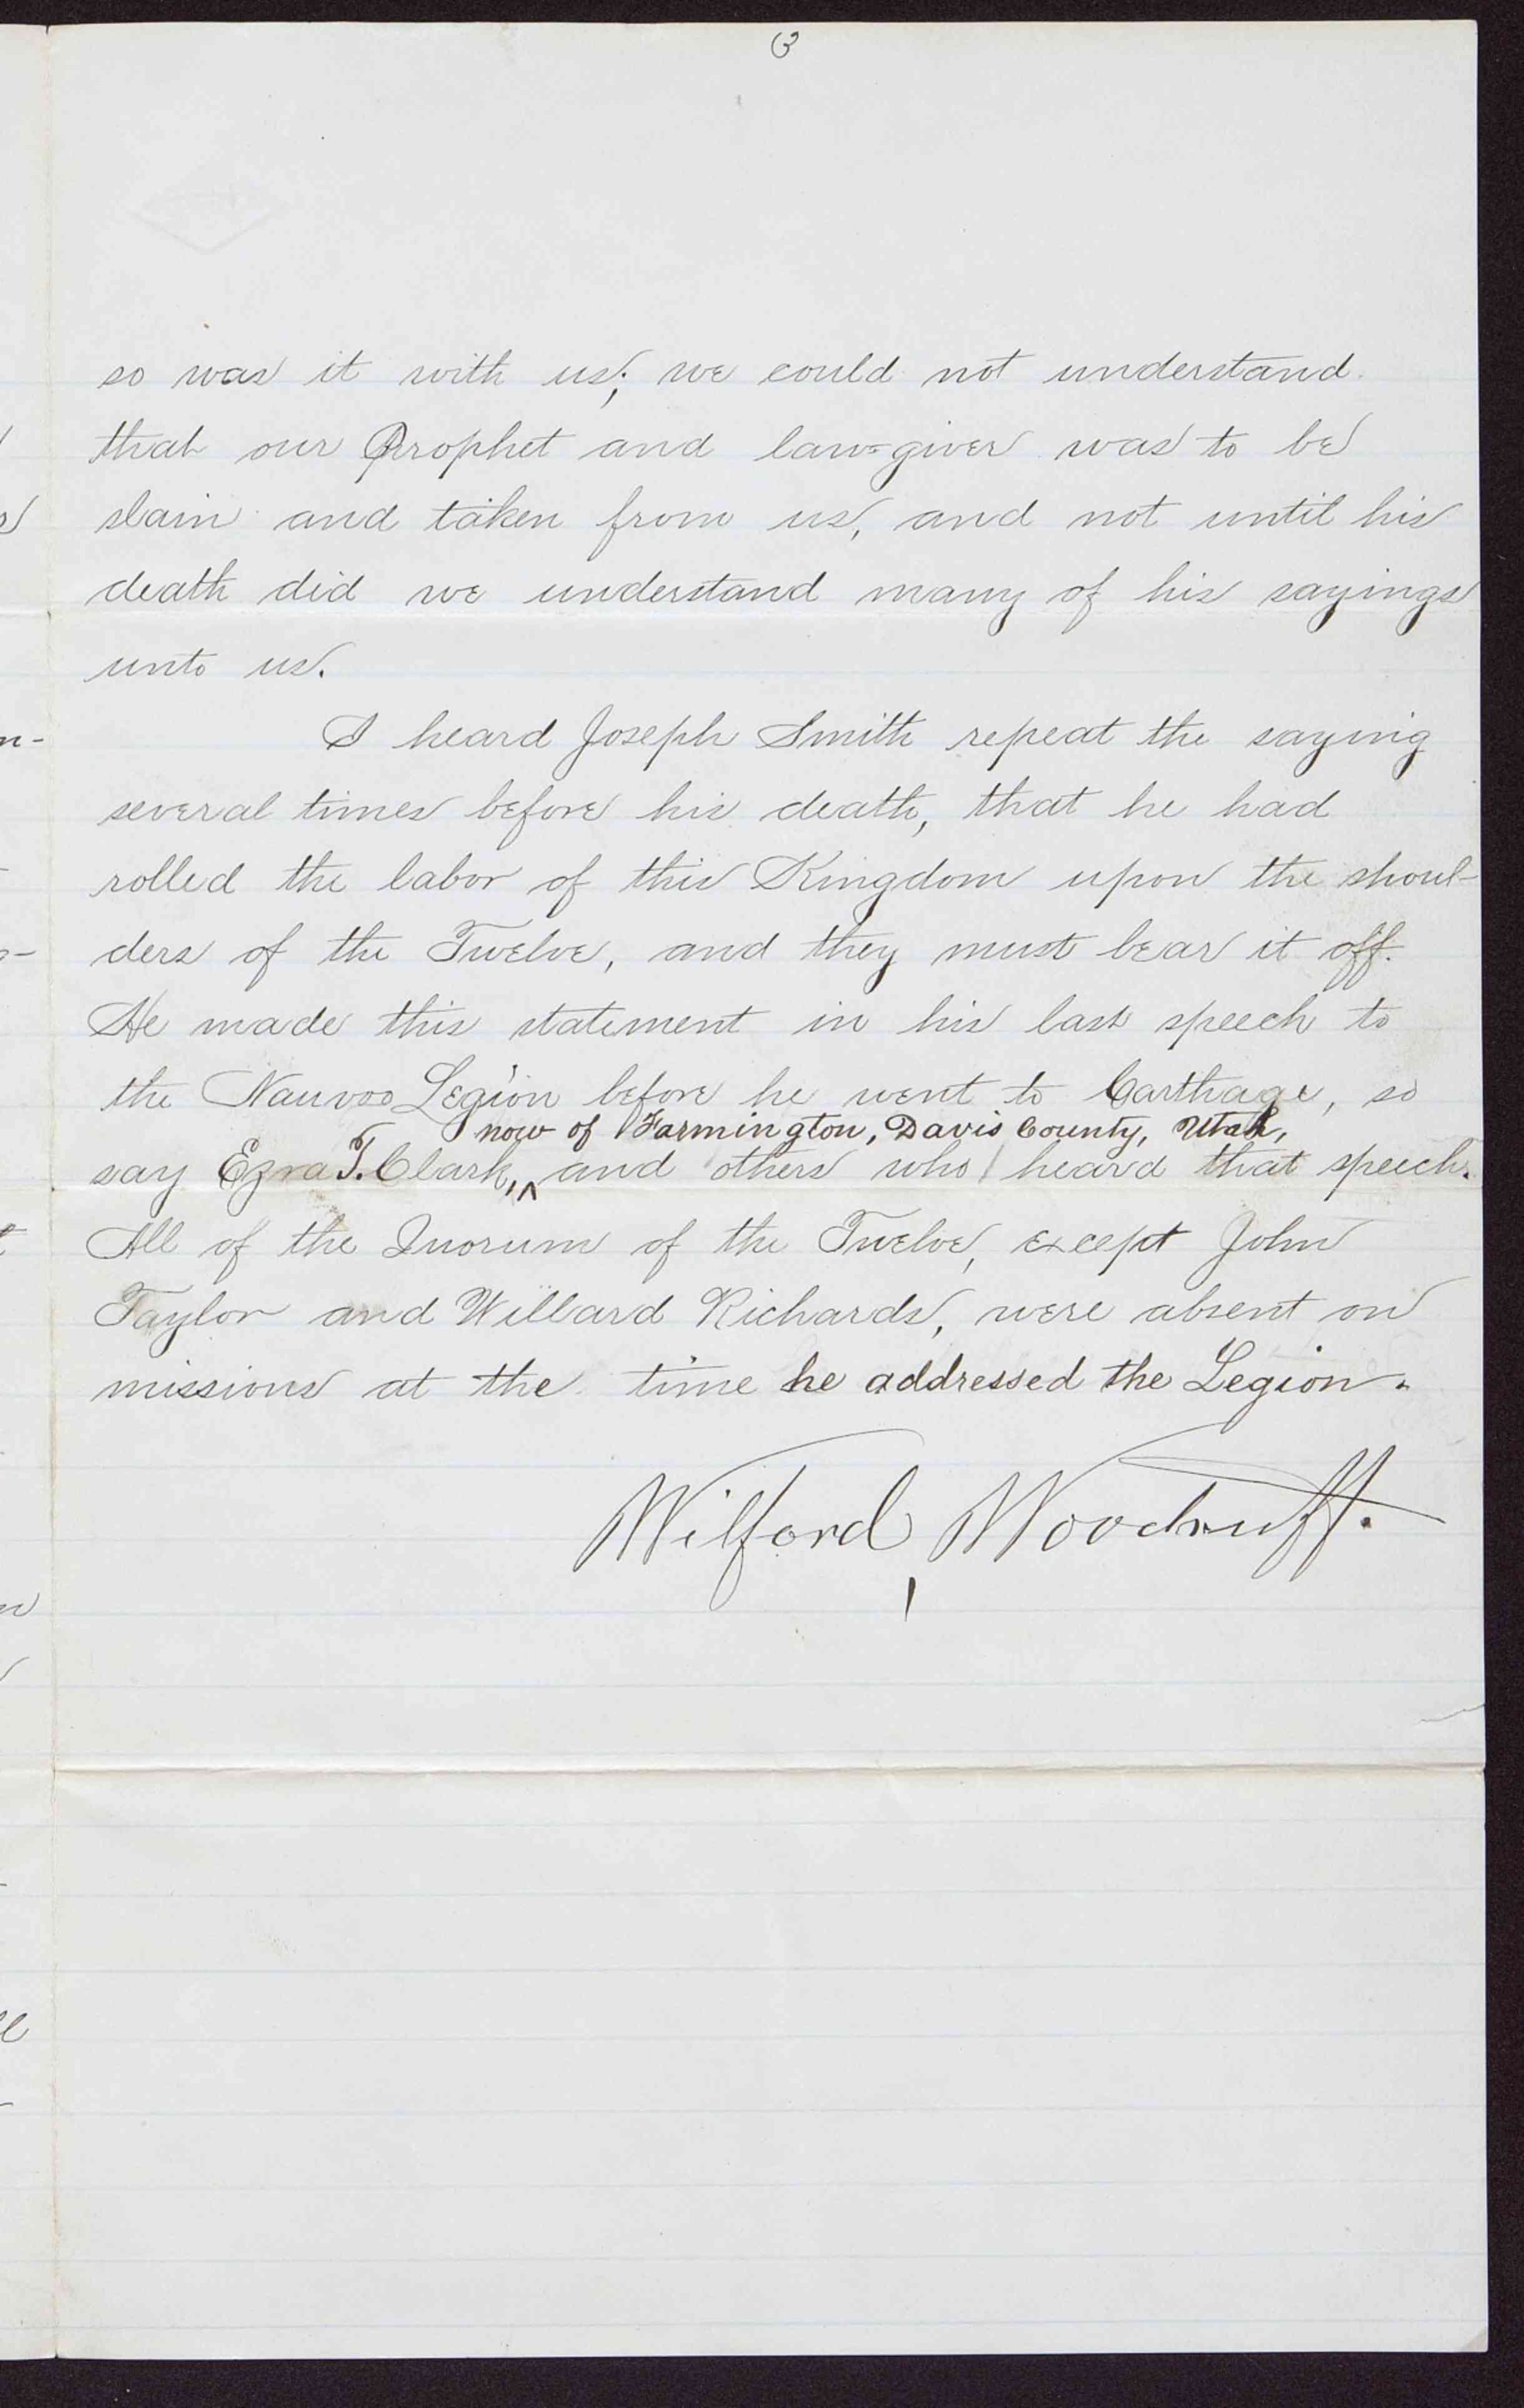 3
so was it with us; we could not understand
that our Prophet and law-giver was to be
slain and taken from us, and not until his
death did we understand many of his sayings
unto us.
I heard Joseph Smith repeat the saying
several times before his death, that he had
rolled the labor of this Kingdom upon the shoul-
ders of the Twelve, and they must bear it off.
He made this statement in his last speech to
the Nauvoo Legion before he went to Carthage, so
now of Farmington, Davis County, Utah,
say Ezra T. Clark, ^ and others who heard that speech.
All of the Quorum of the Twelve, except John
Taylor and Willard Richards, were absent on
missions at the time he addressed the Legion.
Wilford Woodruff.